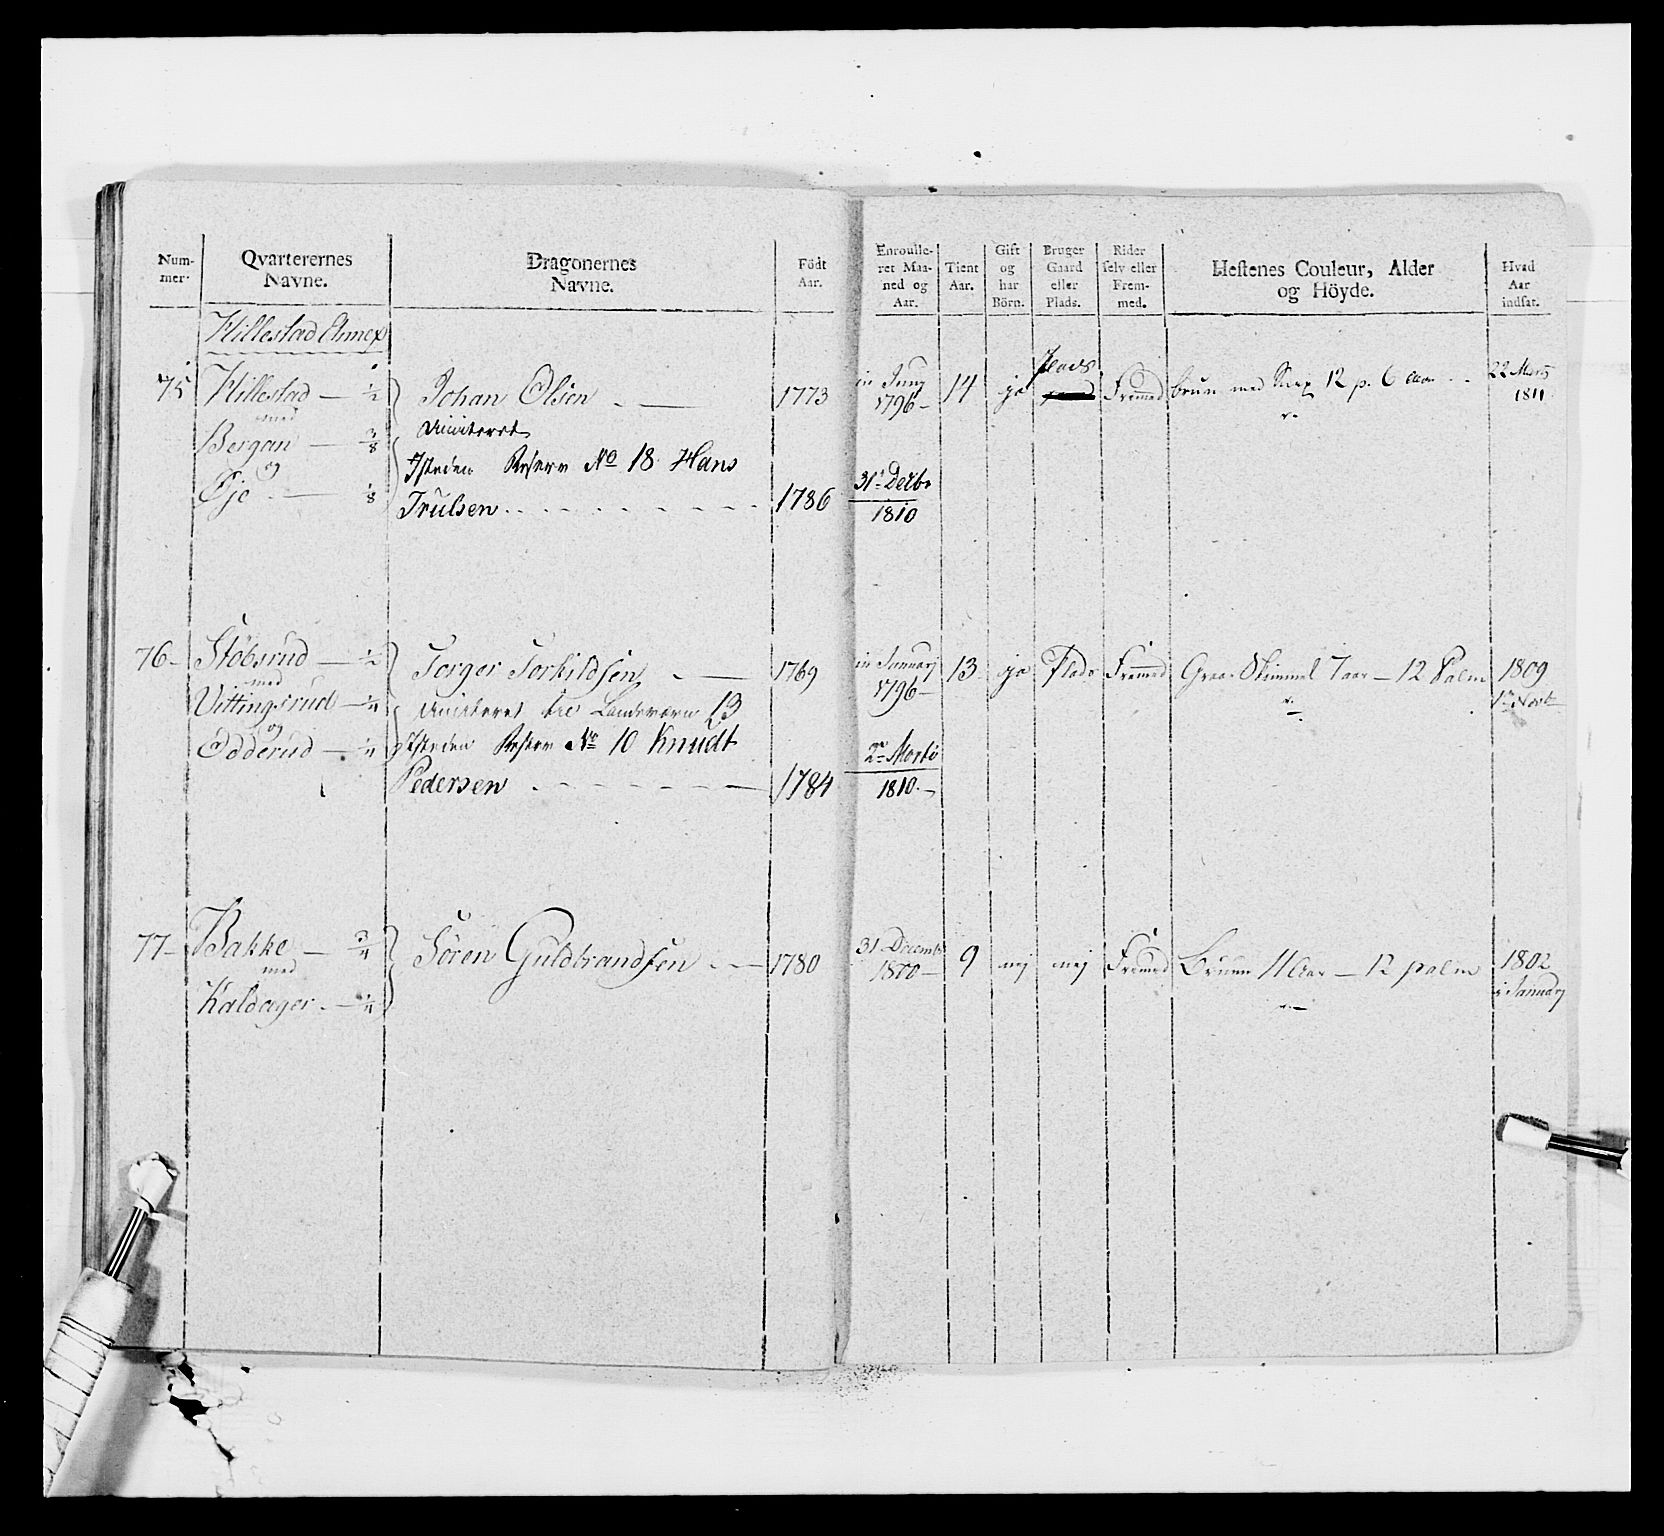 Num-
mer.
Qvarterernes
Navne.
Dragonernes
Navne.
Födt
Aar.
Enroulle-
ret Maa-
ned og
Aar.
Tient
Aar.
Gift
og
har
Börn.
Bruger
Gaard
eller
Plads.
Rider
selv eller
Frem-
med.
Hestenes Couleur, Alder
og Höyde.
Hvad
Aar
indsat.
Hillestad Annex
75 Hillestad — 1/2
med
Bergan — 3/8
og
Øje — 1/8
Johan Olsen
1773
Isteden Reserv No 18 Hans
Trulsen
1786
in Juny
1796
14
ja
Plads
Fremed
brun med 12 p. 6 Aar
22 Marts
1811
31t Decbr
1810
76 Stöbsrud — 1/2
med
Vittingsrud — 1/4
og
Odderud — 1/4
Torger Torkildsen
1769
til Landeværn 13
Isteden Reserv No 10 Knudt
Pedersen
1784
in January
1796
13
ja
Plads
Fremed
Graa Skimmel 7 aar — 12 Palm
1809
2de
1810
77 Bakke — 3/4
med
Kaldager — 1/4
Sören Guldbrandsen
1780
31 Decemb
1800
9
nej
nej
Fremed
Bruun 11 Aar — 12 palm
1802
i January